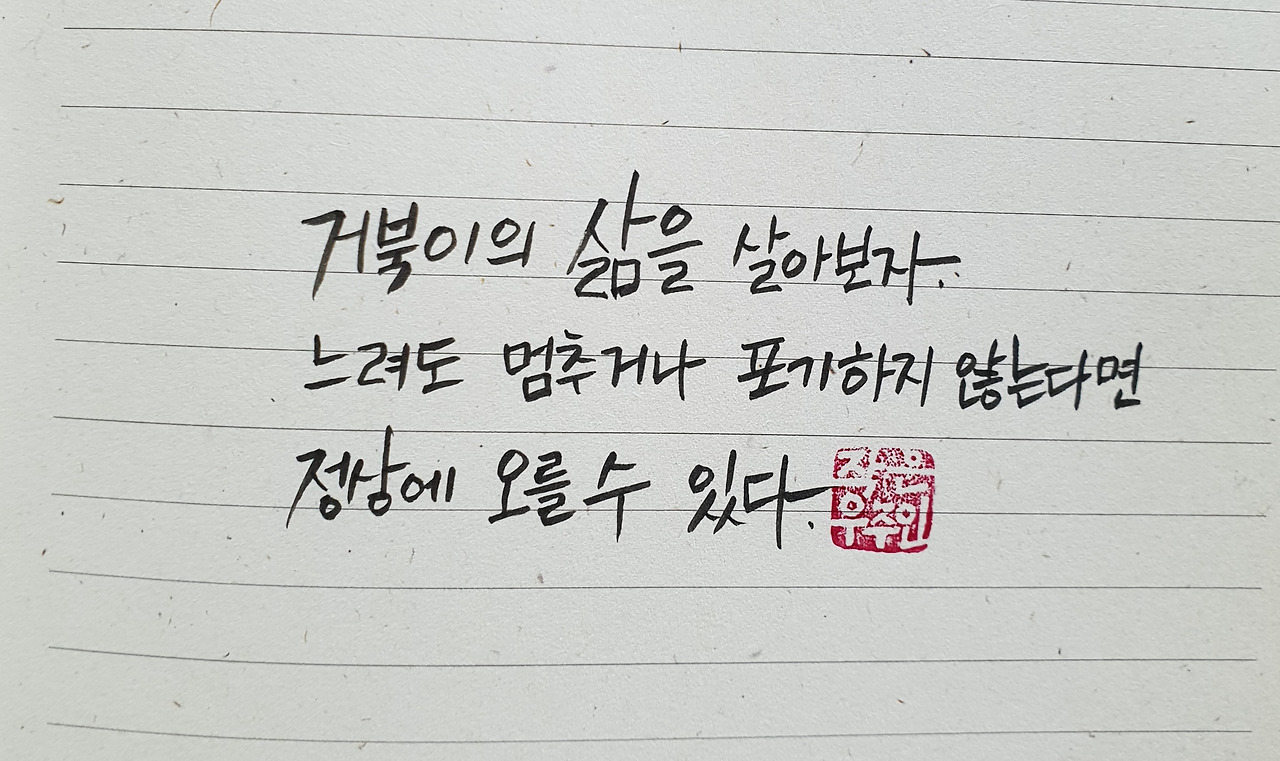 거북이의 삶을 살아보자.
느려도 멈추거나 포기하지 않는다면
정상에 오를 수 있다.